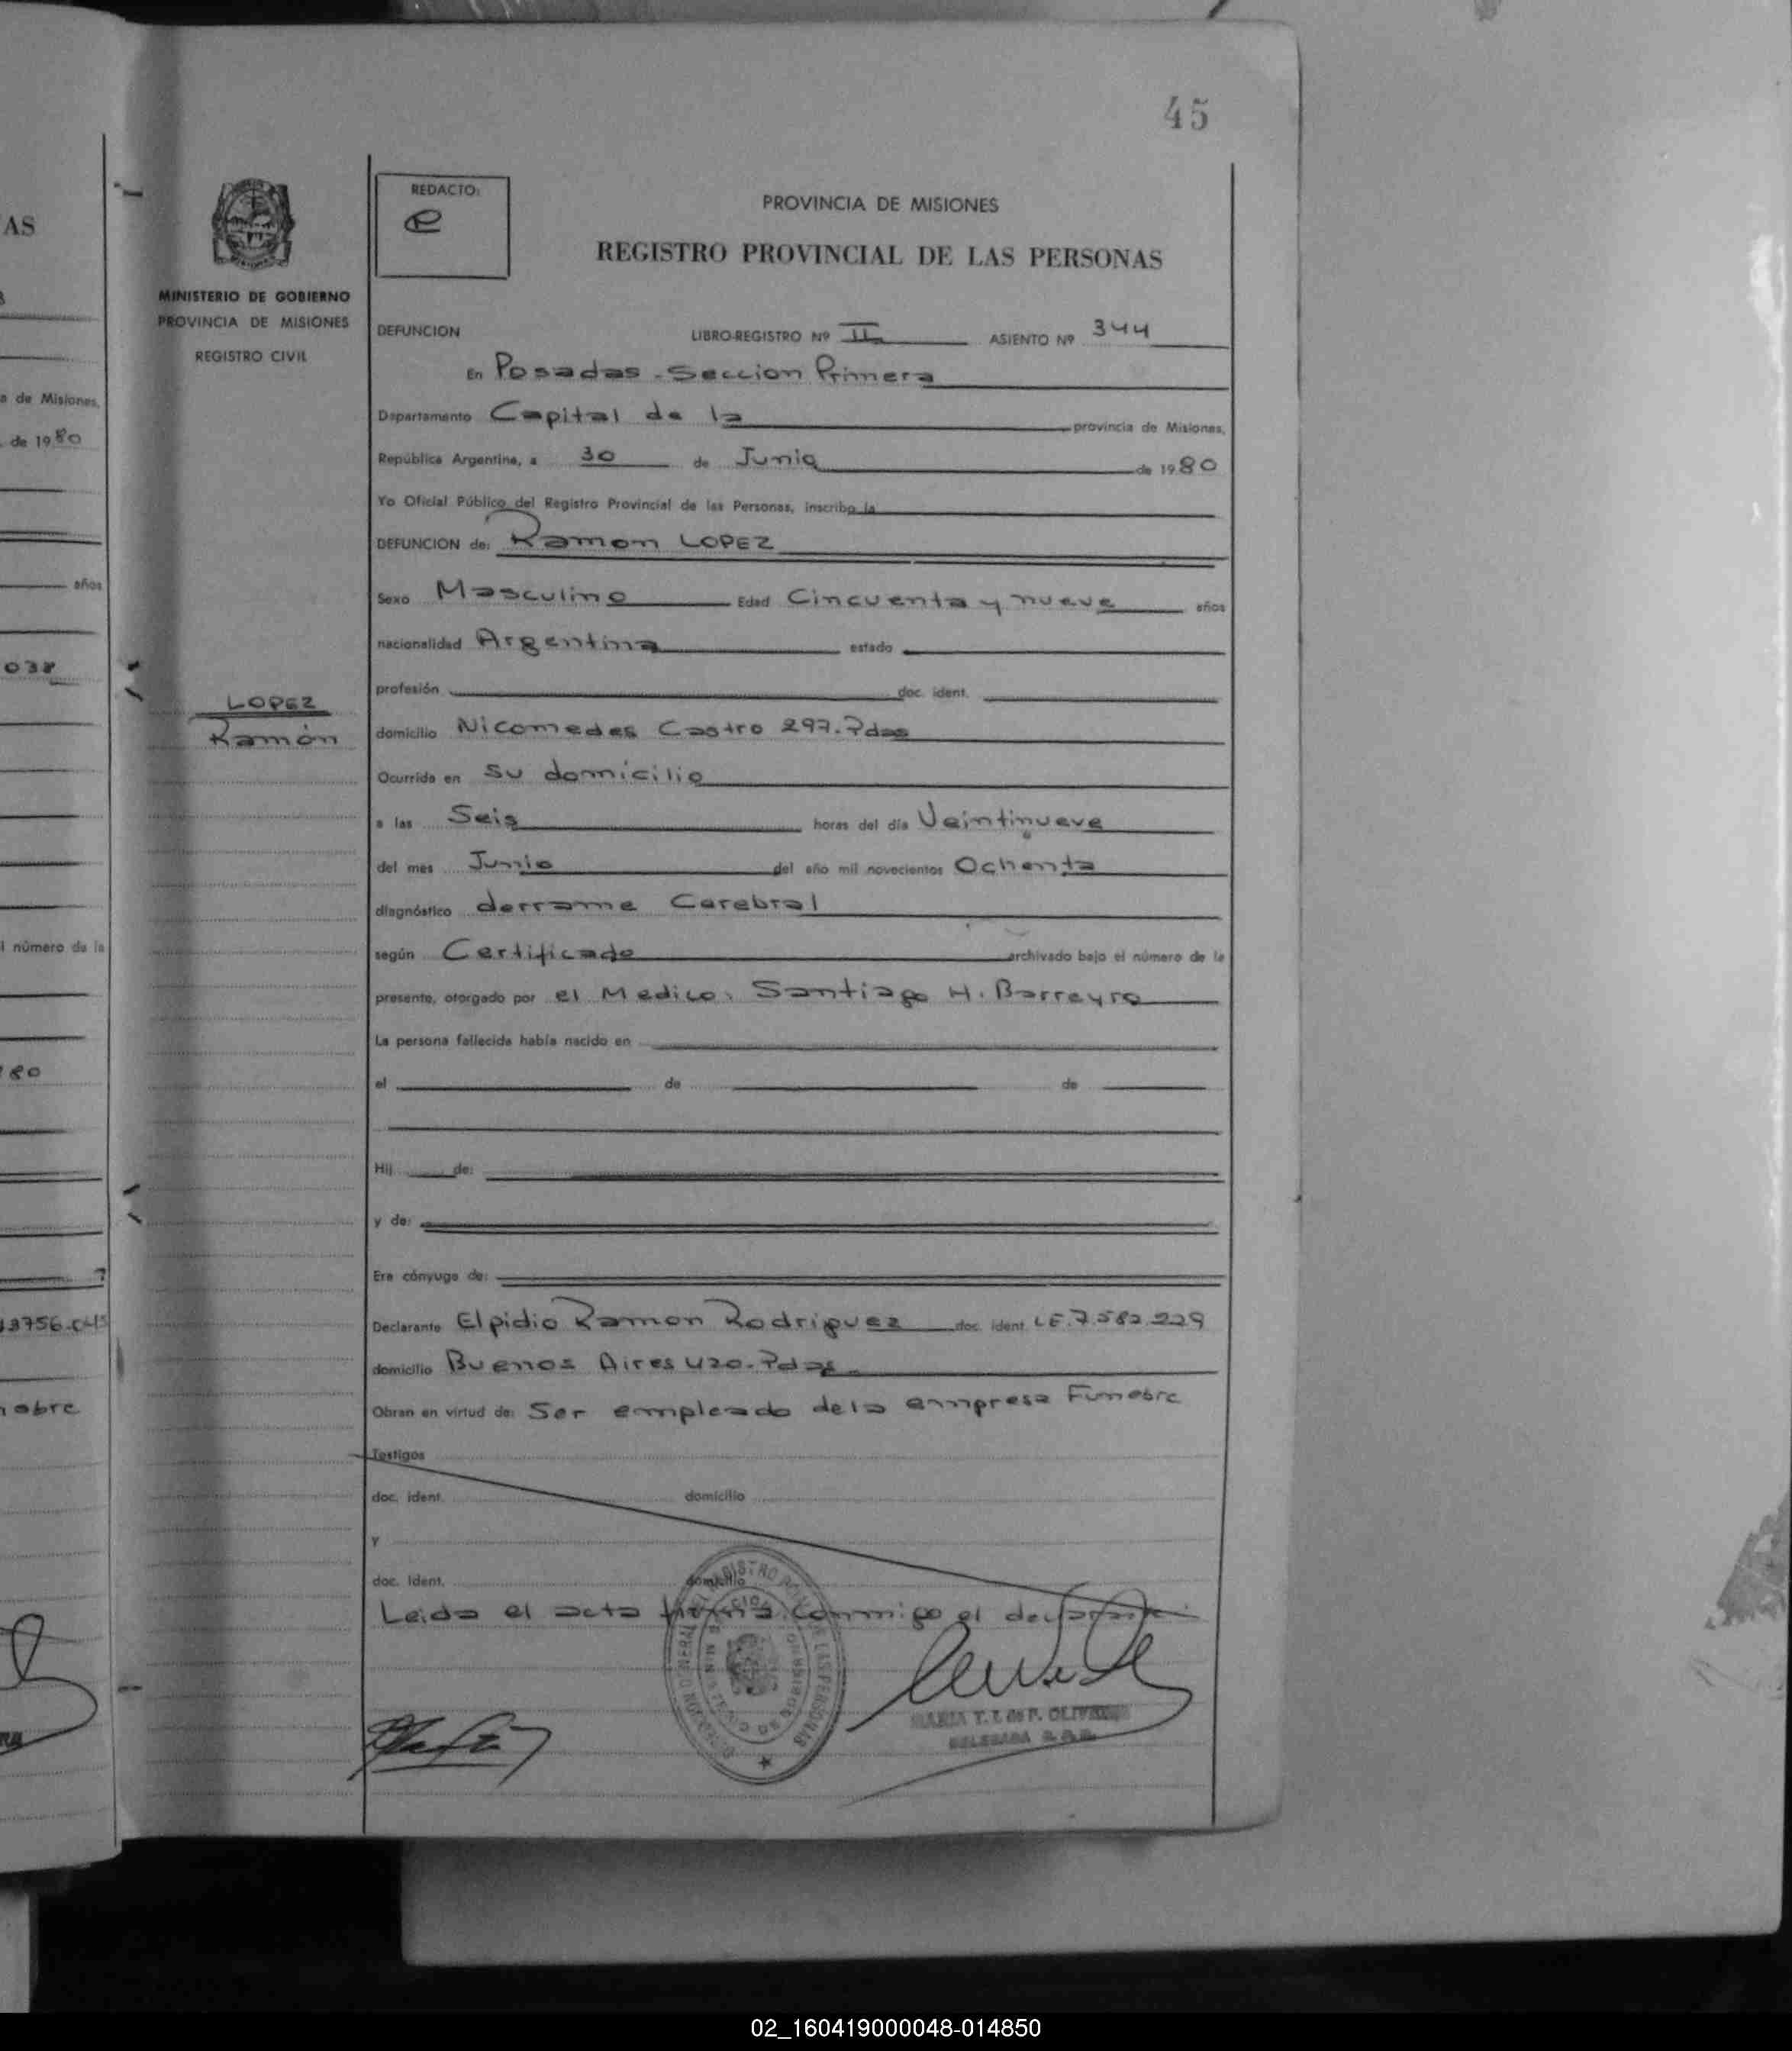 45
AS
REDACTO:
e
PROVINCIA DE MISIONES
REGISTRO PROVINCIAL DE LAS PERSONAS
MINISTERIO DE GOBIERNO
PROVINCIA DE MISIONES
REGISTRO CIVIL
DEFUNCION LIBRO-REGISTRO Nº II ASIENTO Nº 344
En Posadas - Seccion Primera
a de Misiones,
Departamento Capital de la provincia de Misiones,
de 1980
República Argentina, a 30 de Junio de 1980
Yo Oficial Público del Registro Provincial de las Personas, inscribo la
DEFUNCION de: Ramon LOPEZ
años
Sexo Masculino Edad Cincuenta y nueve años
nacionalidad Argentina estado
038
profesión doc. ident.
LOPEZ
Ramón
domicilio Nicomedes Castro 297. Pdas
Ocurrida en su domicilio
a las Seis horas del día Veintinueve
del mes Junio del año mil novecientos Ochenta
diagnóstico derrame Cerebral
l número de la
según Certificado archivado bajo el número de la
presente, otorgado por el Medico: Santiago H. Barreyro
La persona fallecida había nacido en
80
el de de
Hij de:
y de:
Era cónyuge de:
13756.045
Declarante Elpidio Ramon Rodriguez doc. ident. LE.7.582.229
domicilio Buenos Aires 420. Pdas
Obran en virtud de: Ser empleado de la empresa Funebre
nebre
Testigos
doc. ident. domicilio
y
doc. ident. domicilio
Leida el acta firma conmigo el declarante
MARIA T. T. de P. OLIVEIRA
DELEGADA
02_160419000048-014850